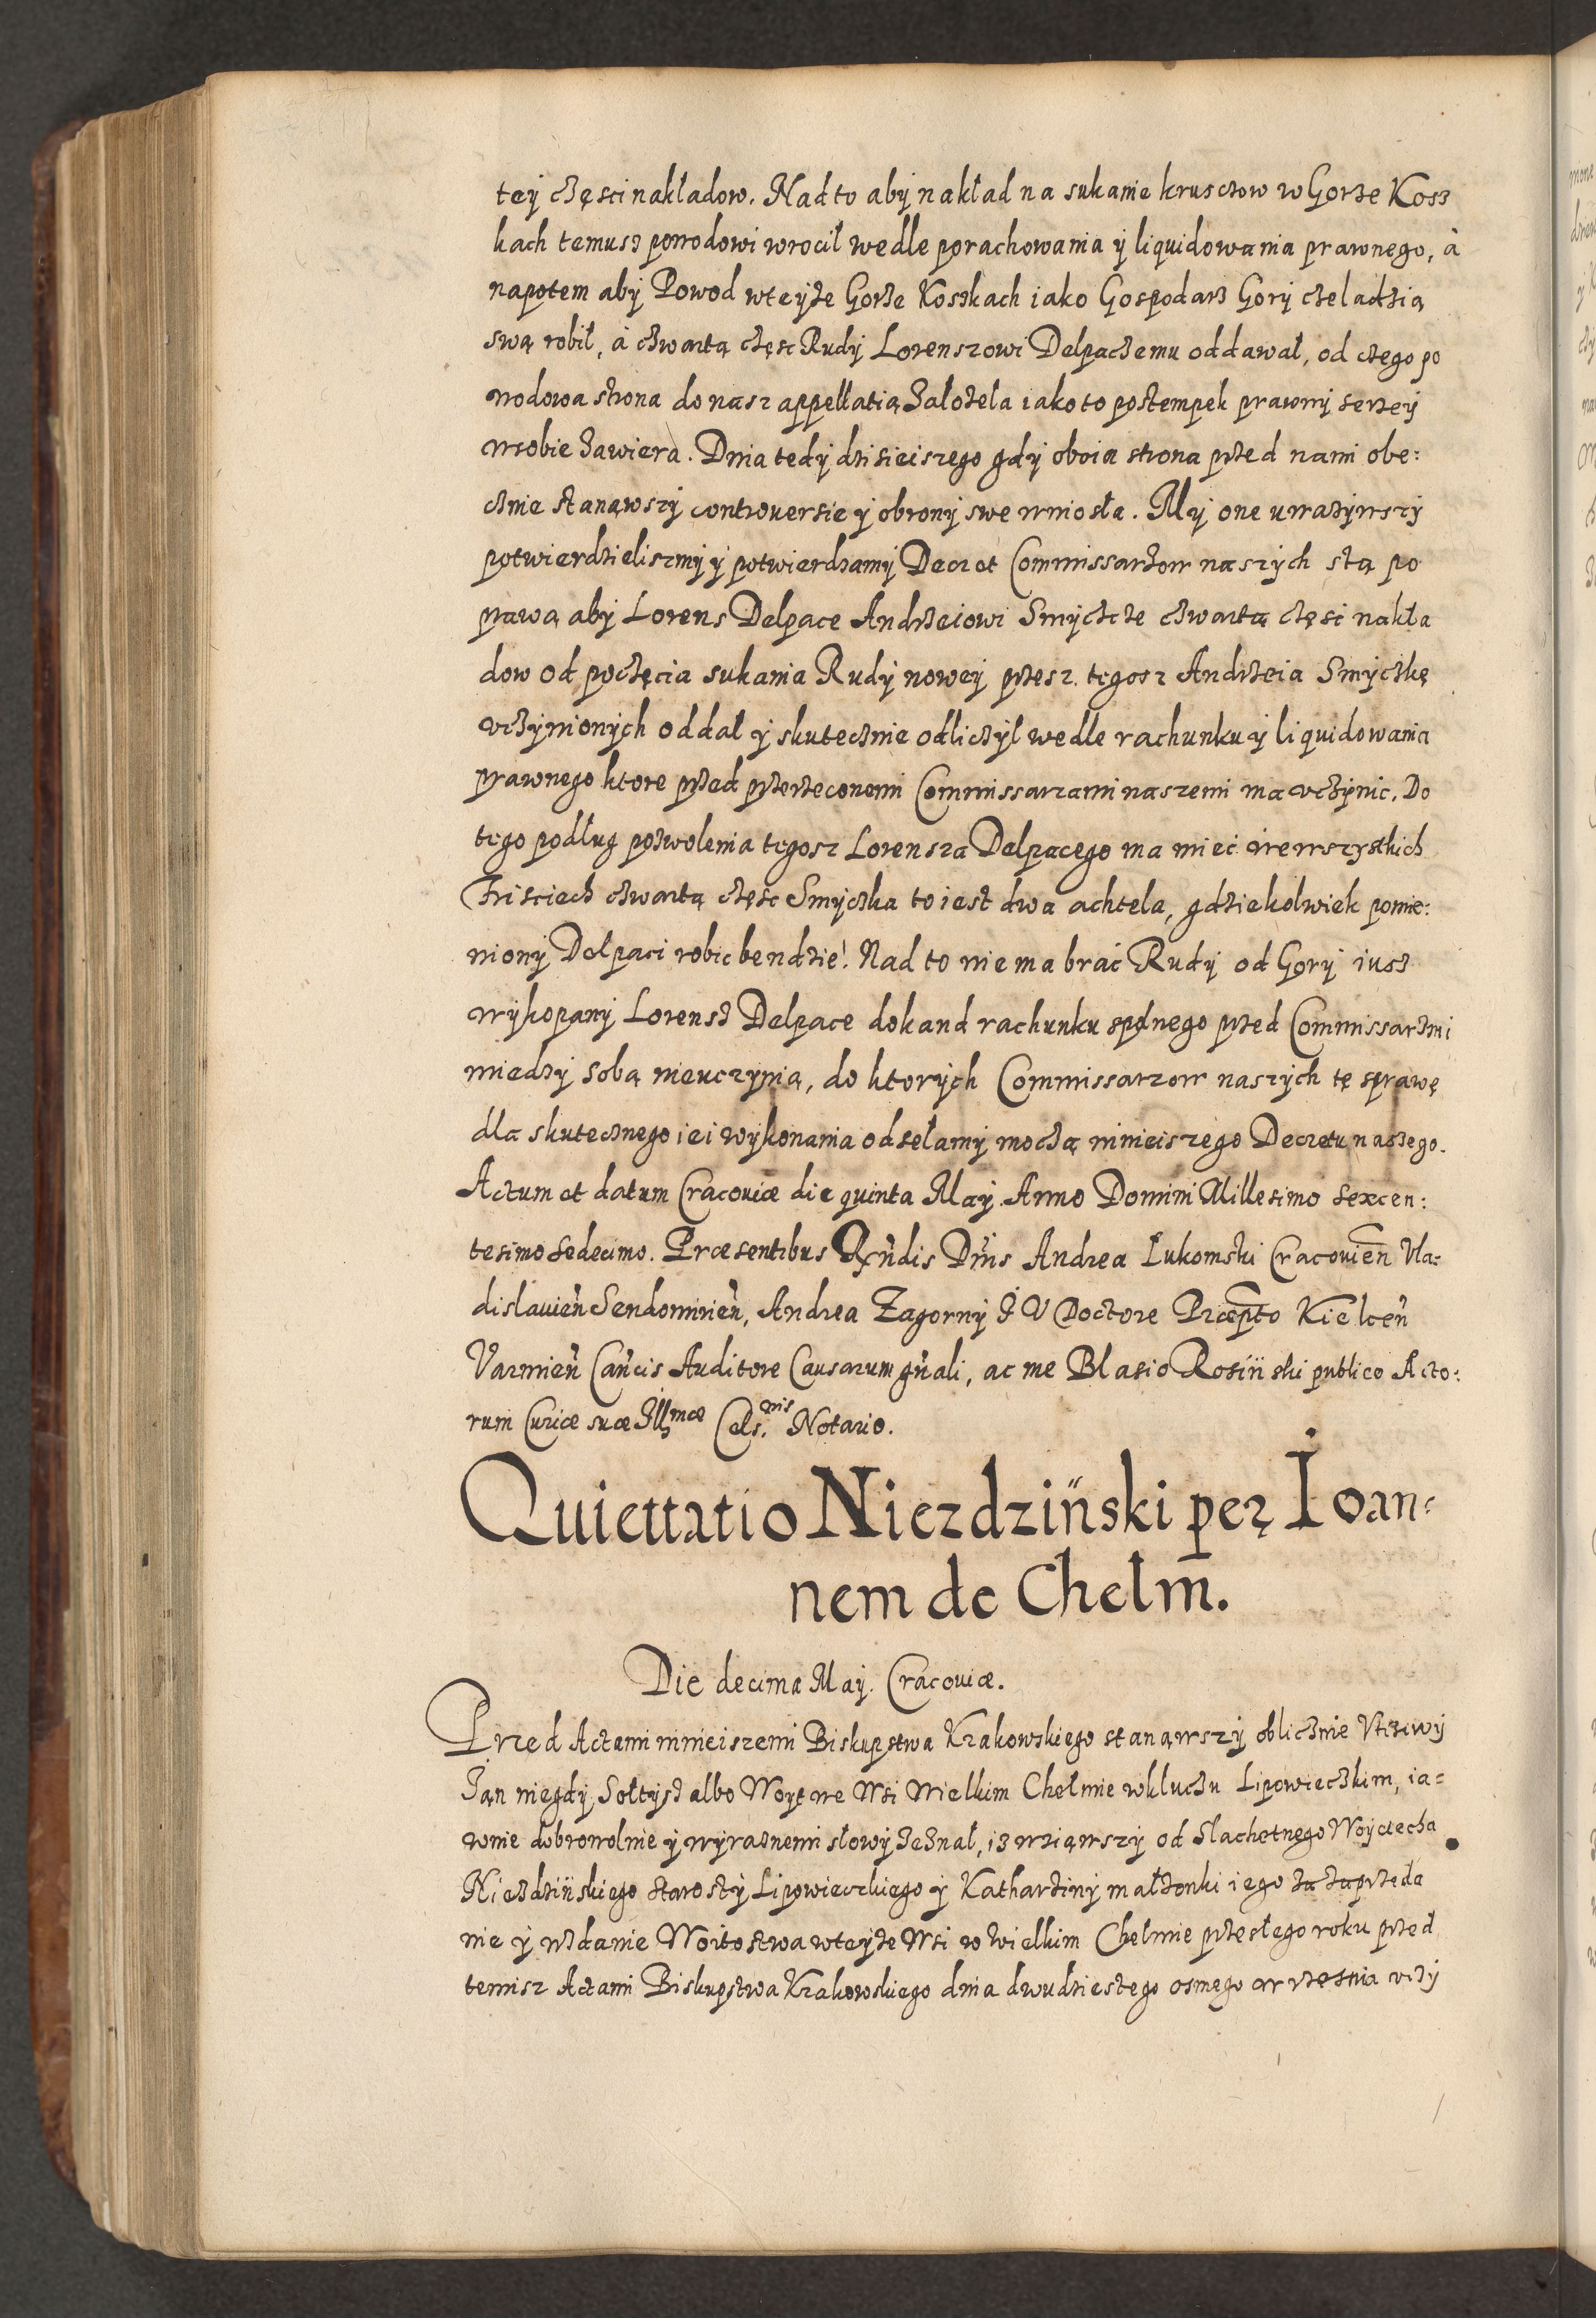 tey części nakładow. Nad to aby nakład na sukanie krusczow w Gorze Kosz
kach temusz powodowi wrocił wedle porachowania y liquidowania prawnego, à
napotem aby Powod wteyże Gorze Koszkach iako Gospodarz Gory czeladzią
swą robił, à czwartą częsc Rudy Lorenszowi Delpaczemu oddawał, od czego po
wodowa strona do nasz appellatią założeła iako to postempek prawny serzey
wsobie zawiera. Dnia tedy dzisieiszego gdy oboia strona przed nami obe:
cznie stanąwszy controversie y obrony swe wniosła. My one uważywszy
potwierdzieliszmy y potwierdzamy Decret Commissarzow naszych stą po
prawą aby Lorens Delpace Andrzeiowi Smyczcze czwartą częsc nakła
dow od poczęcia sukania Rudy nowey przesz tegosz Andrzeia Smyczkę
vczynionych oddał y skutecznie odliczył wedle rachunku y liquidowania
prawnego ktore przed przerzeconemi Commissarzami naszemi ma vczynic. Do
tego podług pozwolenia tegosz Lorensza Delpacego ma mieć wewszystkich
Friściech czwartą częsc Smyczka to iest dwa achtela, gdziekolwiek pomie:
niony Delpaci robic bendzie. Nad to nie ma brać Rudy od Gory iusz
wykopany Lorensz Delpace dokand rachunku spolnego przed Commissarzmi
miedzy sobą nieuczynią, do ktorych Commissarzow naszych tę sprawę
dla skutecznego iei wykonania odsełamy moczą ninieiszego Decretu naszego.
Actum et datum Cracoviæ die quinta May. Anno Domini Millesimo sexcen:
tesimo sedecimo. Præsentibus Rñdis Dñis Andrea Łukomski Cracovien̄ Vla:
dislavien̄ Sendomirien̄, Andrea Zagorny I V Doctore Præpto Kielcen̄
Varmien̄ Can̄cis Auditore Causarum gn̄ali, ac me Blasio Rosiński publico Acto:
rum Curiæ suæ Illmæ Cels.nis Notario.
Quiettatio Niezdziński per Ioan:
nem de Chełm̄.
Die decima May. Cracoviæ.
Przed Actami ninieiszemi Biskupstwa Krakowskiego stanąwszy oblicznie Vtzciwy
Jan niegdy Sołtysz albo Woyt we Wsi Wielkim Chełmie wkluczu Lipowieczkim, ia=
wnie dobrowolnie y wyraznemi słowy zeznał, iz wziąwszy od Slachetnego Woyciecha
Niezdzińskiego Starosty Lipowieczkiego y Katharziny małżonki iego za zaprzeda
nie y wzdanie Woitostwa wteyże Wsi w Wielkim Chełmie przeszłego roku przed
temisz Actami Biskupstwa Krakowskiego dnia dwudziestego osmego wrzesnia vczy